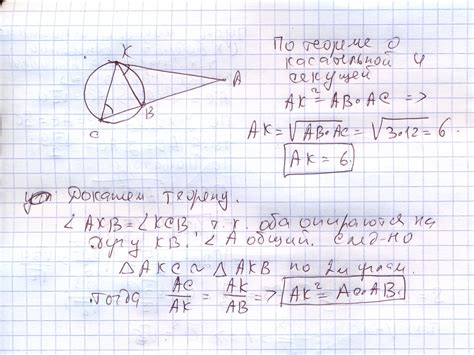 K
A
B
C
По теореме о
касательной и
секущей
AK² = AB·AC =>
AK = √AB·AC = √3·12 = 6.
AK = 6.
Докажем теорему.
∠AKB = ∠KCB т.к. оба опираются на
дугу KB. ∠A общий. след-но
△AKC ~ △AKB по 2м углам.
Тогда AC/AK = AK/AB => AK² = AC·AB.